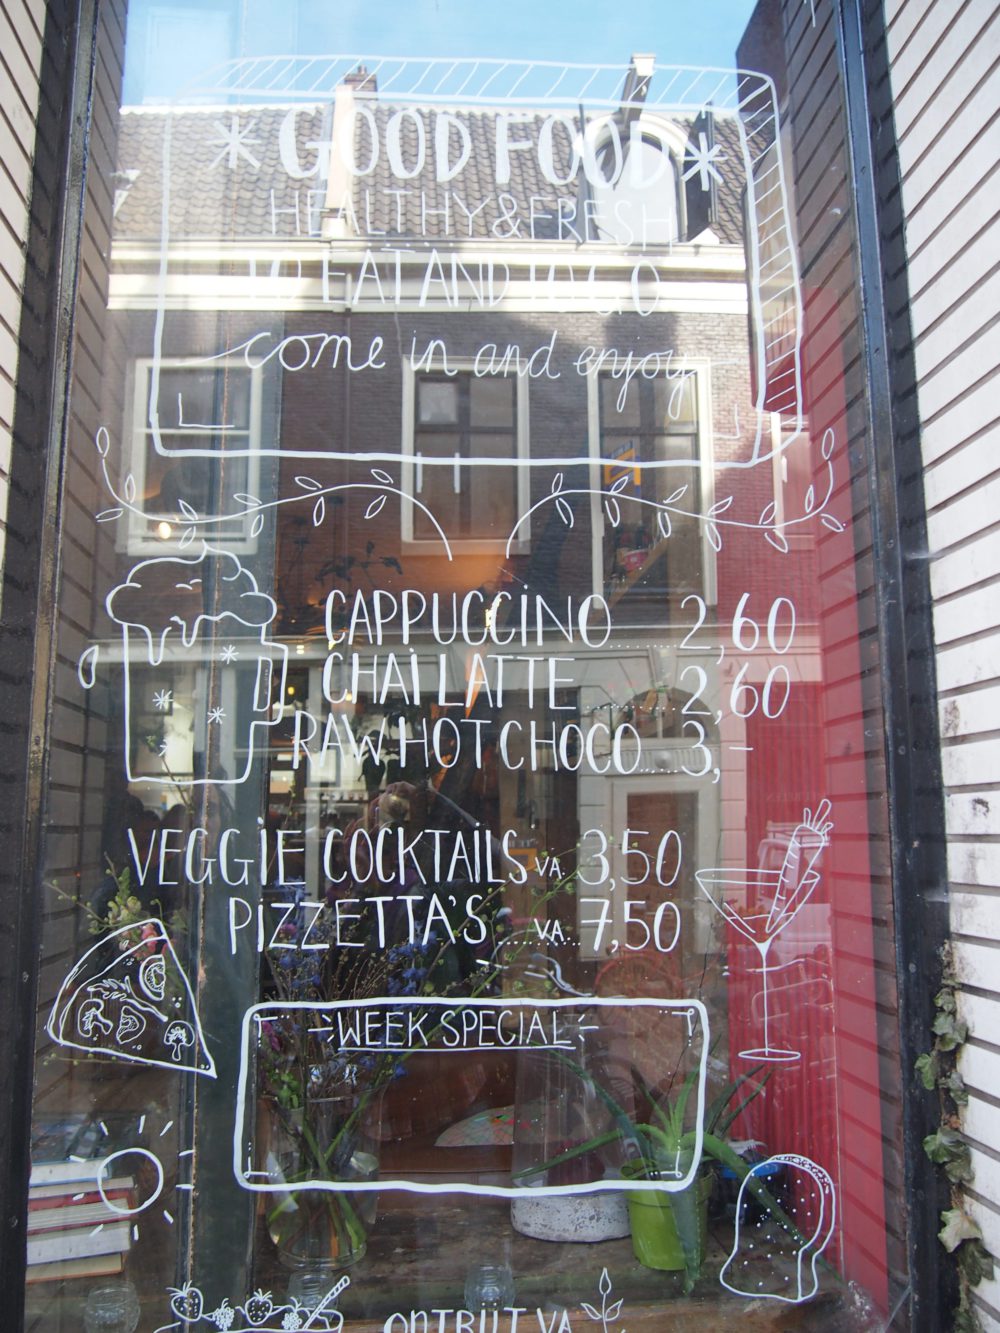 *GOOD FOOD*
HEALTHY & FRESH
TO EAT AND TO GO
come in and enjoy
CAPPUCCINO......2,60
CHAI LATTE......2,60
RAW HOT CHOCO....3,–
VEGGIE COCKTAILS VA. 3,50
PIZZETTA'S....VA...7,50
WEEK SPECIAL
ONTBIJT VA